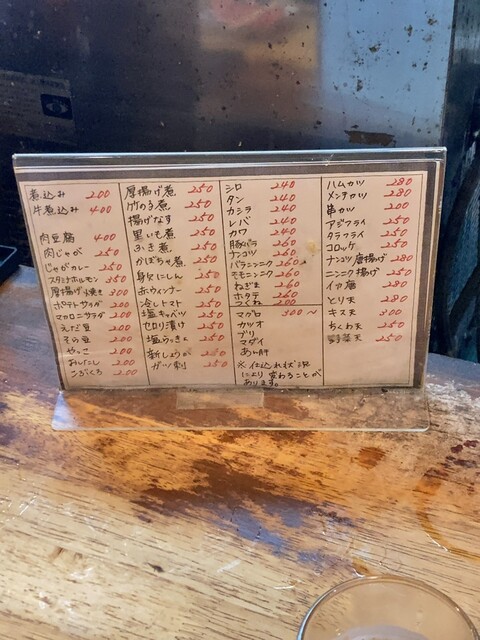 煮込み 200
牛煮込み 400
肉豆腐 400
肉じゃが 250
じゃがカレー 250
スタミナホルモン 350
厚揚げ焼き 300
ポテトサラダ 200
マカロニサラダ 200
えだ豆 200
そら豆 200
やっこ 200
おしんこ 200
こぶくろ 200
厚揚げ煮 250
竹の子煮 250
揚げなす 250
里いも煮 250
ふき煮 250
かぼちゃ煮 250
身欠にしん 250
赤ウィンナー 250
冷しトマト 250
塩キャベツ 250
セロリ漬け 250
塩らっきょ 250
新しょうが 250
ガツ刺 250
シロ 240
タン 240
カシラ 240
レバ 240
カワ 240
豚バラ 260
ナンコツ 260
バラニンニク 260
モモニンニク 260
ねぎま 260
ホタテ 260
つくね 200
マグロ 300～
カツオ
ブリ
マダイ
あん肝
※仕込れ状況
により変わることが
あります。
ハムカツ 280
メンチカツ 280
串カツ 200
アジフライ 250
タラフライ 250
コロッケ 250
ナンコツ唐揚げ 280
ニンニク揚げ 250
イカ唐 280
とり天 280
キス天 300
ちくわ天 250
野菜天 250